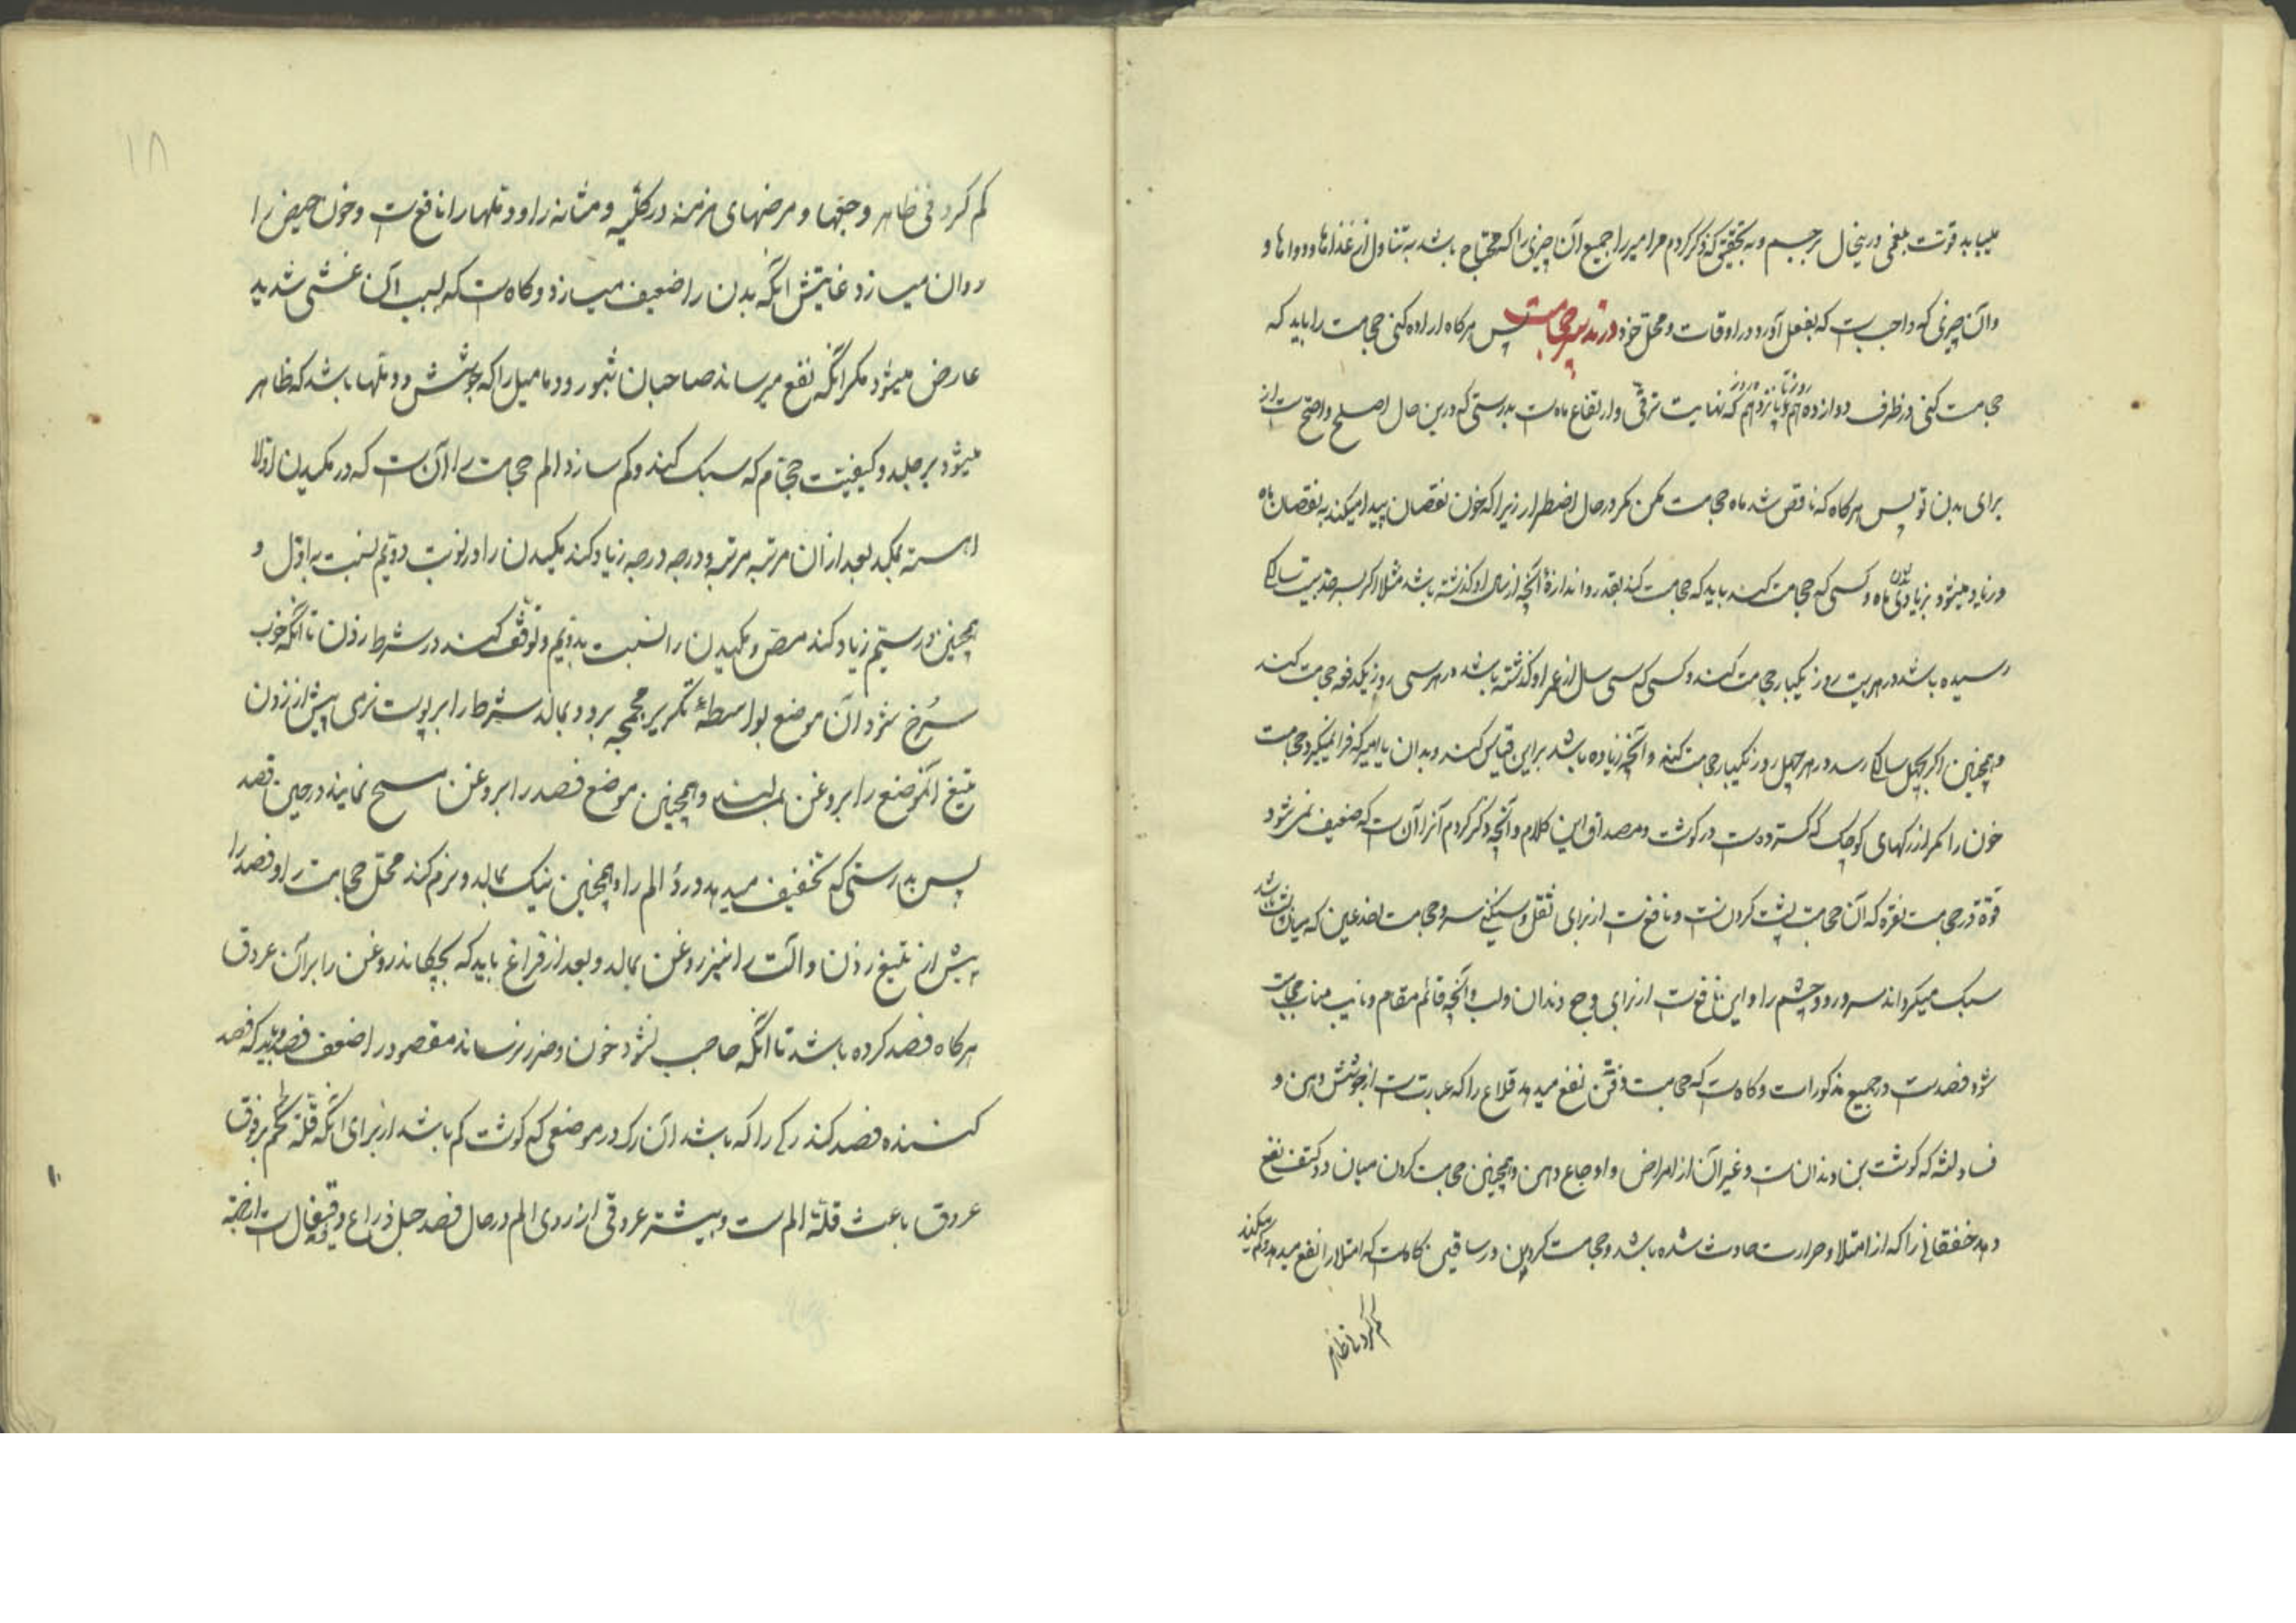 مییابد قوت بلغمی درینحال بر جسم و به تحقیق که ذکر کردم مر امیر را جمیع آن چیزی را که محتاج باشد به تناول از غذاها و دواها و
و آن چیزی که واجبست که بفعل آورد در اوقات و محل خود در تدبیر حجامت پس هرکاه اراده کنی حجامت را باید که
حجامت کنی در ظرف دوازدهم روز تا پانزدهم روز که نهایت ترقی و ارتفاع ماهست بدرستی که درین حال اصلح و اصح است از
برای بدن تو پس هرکاه که ناقص شد ماه حجامت مکن مکر در حال اضطرار زیرا که خون نقصان پیدا میکند به نقصان ماه
و زیاد میشود بزیادتی ماه و کسی که حجامت کند باید که حجامت کند بقدر و اندازهٔ آنچه از سال او کذشته باشد مثلا اکر بسر حد بیست سالکی
رسیده باشد در هر بیست روز یکبار حجامت کند و کسی که سی سال از عمر او کذشته باشد در هر سی روز یکدفعه حجامت کند
و همچنین اکر بچهل سالکی رسد در هر چهل روز یکبار حجامت کند و آنچه زیاده باشد برین قیاس کند و بدان یا امیر که فرا میکیرد حجامت
خون را مکر از رکهای کوچک که کسترده است در کوشت و مصداق این کلام و آنچه ذکر کردم آنرا آن است که ضعیف نمیشود
قوة در حجامت نقره که آن حجامت پشت کردنست و نافع است از برای ثقل و سنکینی سر و حجامت اخدعین که میان
سبک میکرداند سر و رو و چشم را و این نافع است از برای وجع دندان و لب و آنچه قائم مقام و نایب مناب حجامت
شود فصد است در جمیع مذکورات و کاه است که حجامت ذقن نفع میدهد قلاع را که عبارتست از جوشش دهن و
فساد لثه که کوشت بن دندان است و غیر آن از امراض و اوجاع دهن و همچنین حجامت کردن میان دو کتف نفع
دهد خفقانی را که از امتلا و حرارت حادث شده باشد و حجامت کردن در ساقین کاه است که امتلا را نفع میدهد و کم میکند
کم کردنی ظاهر
۱۸
کم کردنی ظاهر و جعها و مرضهای مزمنه در کلیه و مثانه را و دملها را نافع است و خون حیض را
روان میسازد غایتش آنکه بدن را ضعیف میسازد و کاه است که بسبب آن غشی شدید
عارض میشود مکر آنکه نفع میرساند صاحبان بثور و دمامیل را که جوشش و دملها باشد که ظاهر
میشود بر جلد و کیفیت حجام که سبک کند و کم سازد الم حجامت را آن است که در مکیدن اولا
اهسته بمکد بعد از آن مرتبه مرتبه و درجه درجه زیاد کند مکیدن را در نوبت دویم نسبت به اول و
همچنین در سیم زیاد کند مص و مکیدن را نسبت بدویم و توقف کند در شرط زدن تا آنکه خوب
سرخ شود آن موضع بواسطهٔ تکریر محجمه برو و بمالد شرط را بر پوست نرمی پیش از زدن
تیغ آنموضع را بروغن بمالند و همچنین موضع فصد را بروغن مسح نمایند در حین فصد
پس بدرستی که تخفیف میدهد ورد الم را و همچنین نیک بمالد و نرم کند محل حجامت را و فصد را
پیش از تیغ زدن و آلت را نیز روغن بمالد و بعد از فراغ باید که بچکاند روغن را بر آن عروق
هرکاه فصد کرده باشد تا آنکه حاجب نشود خون و ضرر نرساند مقصود را ضعف فصد و باید که فصد
کننده فصد کند رکی را که باشد آن رک در موضعی که کوشت کم باشد از برای آنکه قلة لحم بر فوق
عروق باعث قلة الم است و بیشتر عروقی از روی الم در حال فصد حبل ذراع و قیفال است از جهة